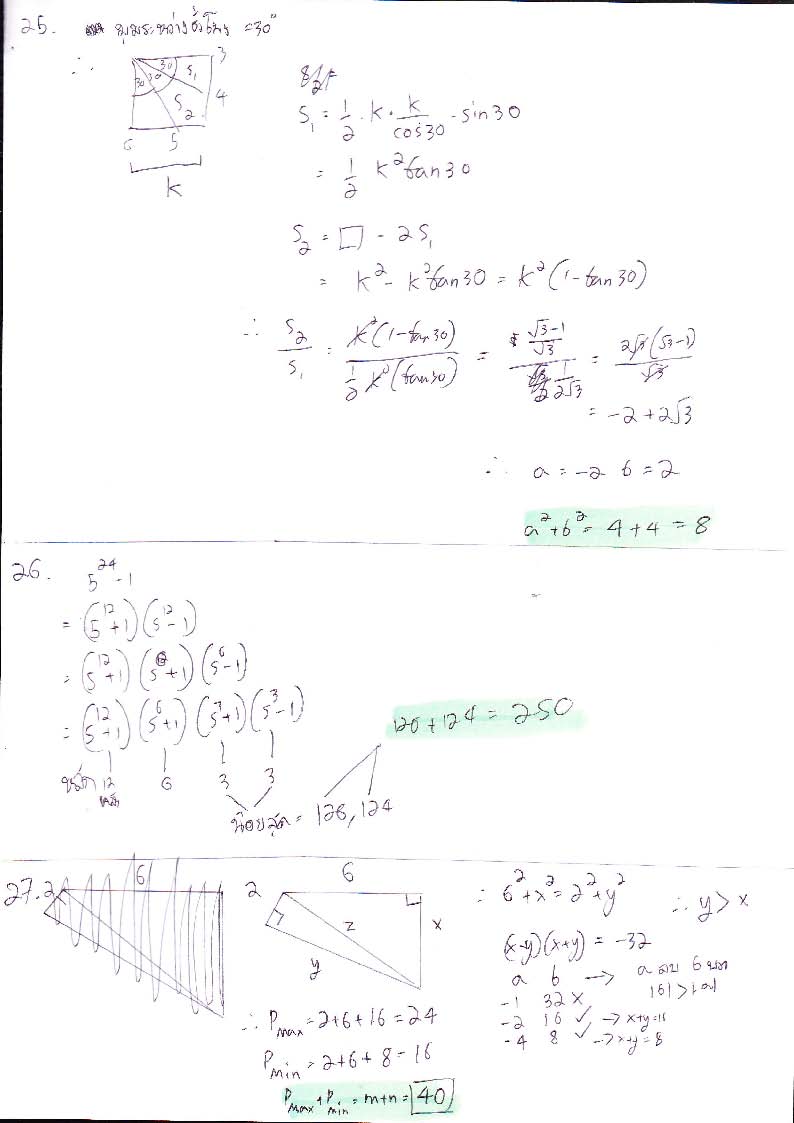 25. มุมระหว่างชั่วโมง = 30°
∴
30 30 30 S₁ S₂ 3 4 5 6 k
S₁ = 1/2 · k · k/cos30 · sin30
= 1/2 k² tan30
S₂ = □ - 2S₁
= k² - k² tan30 = k²(1 - tan30)
∴ S₂/S₁ = k²(1 - tan30) / (1/2 k²(tan30)) = ((√3-1)/√3) / (1/(2√3)) = 2√3(√3-1)/√3
= -2 + 2√3
∴ a = -2 b = 2
a² + b² = 4 + 4 = 8
26. 5²⁴ - 1
= (5¹² + 1)(5¹² - 1)
= (5¹² + 1)(5⁶ + 1)(5⁶ - 1)
= (5¹² + 1)(5⁶ + 1)(5³ + 1)(5³ - 1)
12 6 3 3
หลัก
น้อยสุด = 126, 124
126 + 124 = 250
27. 2 6
2 6 x y z
∴ 6² + x² = 2² + y² ∴ y > x
(x-y)(x+y) = -32
a b → a ลบ b บวก
|b| > |a|
-1 32 ×
-2 16 ✓ → x+y = 16
-4 8 ✓ → x+y = 8
∴ Pmax = 2 + 6 + 16 = 24
Pmin = 2 + 6 + 8 = 16
Pmax + Pmin = m + n = 40